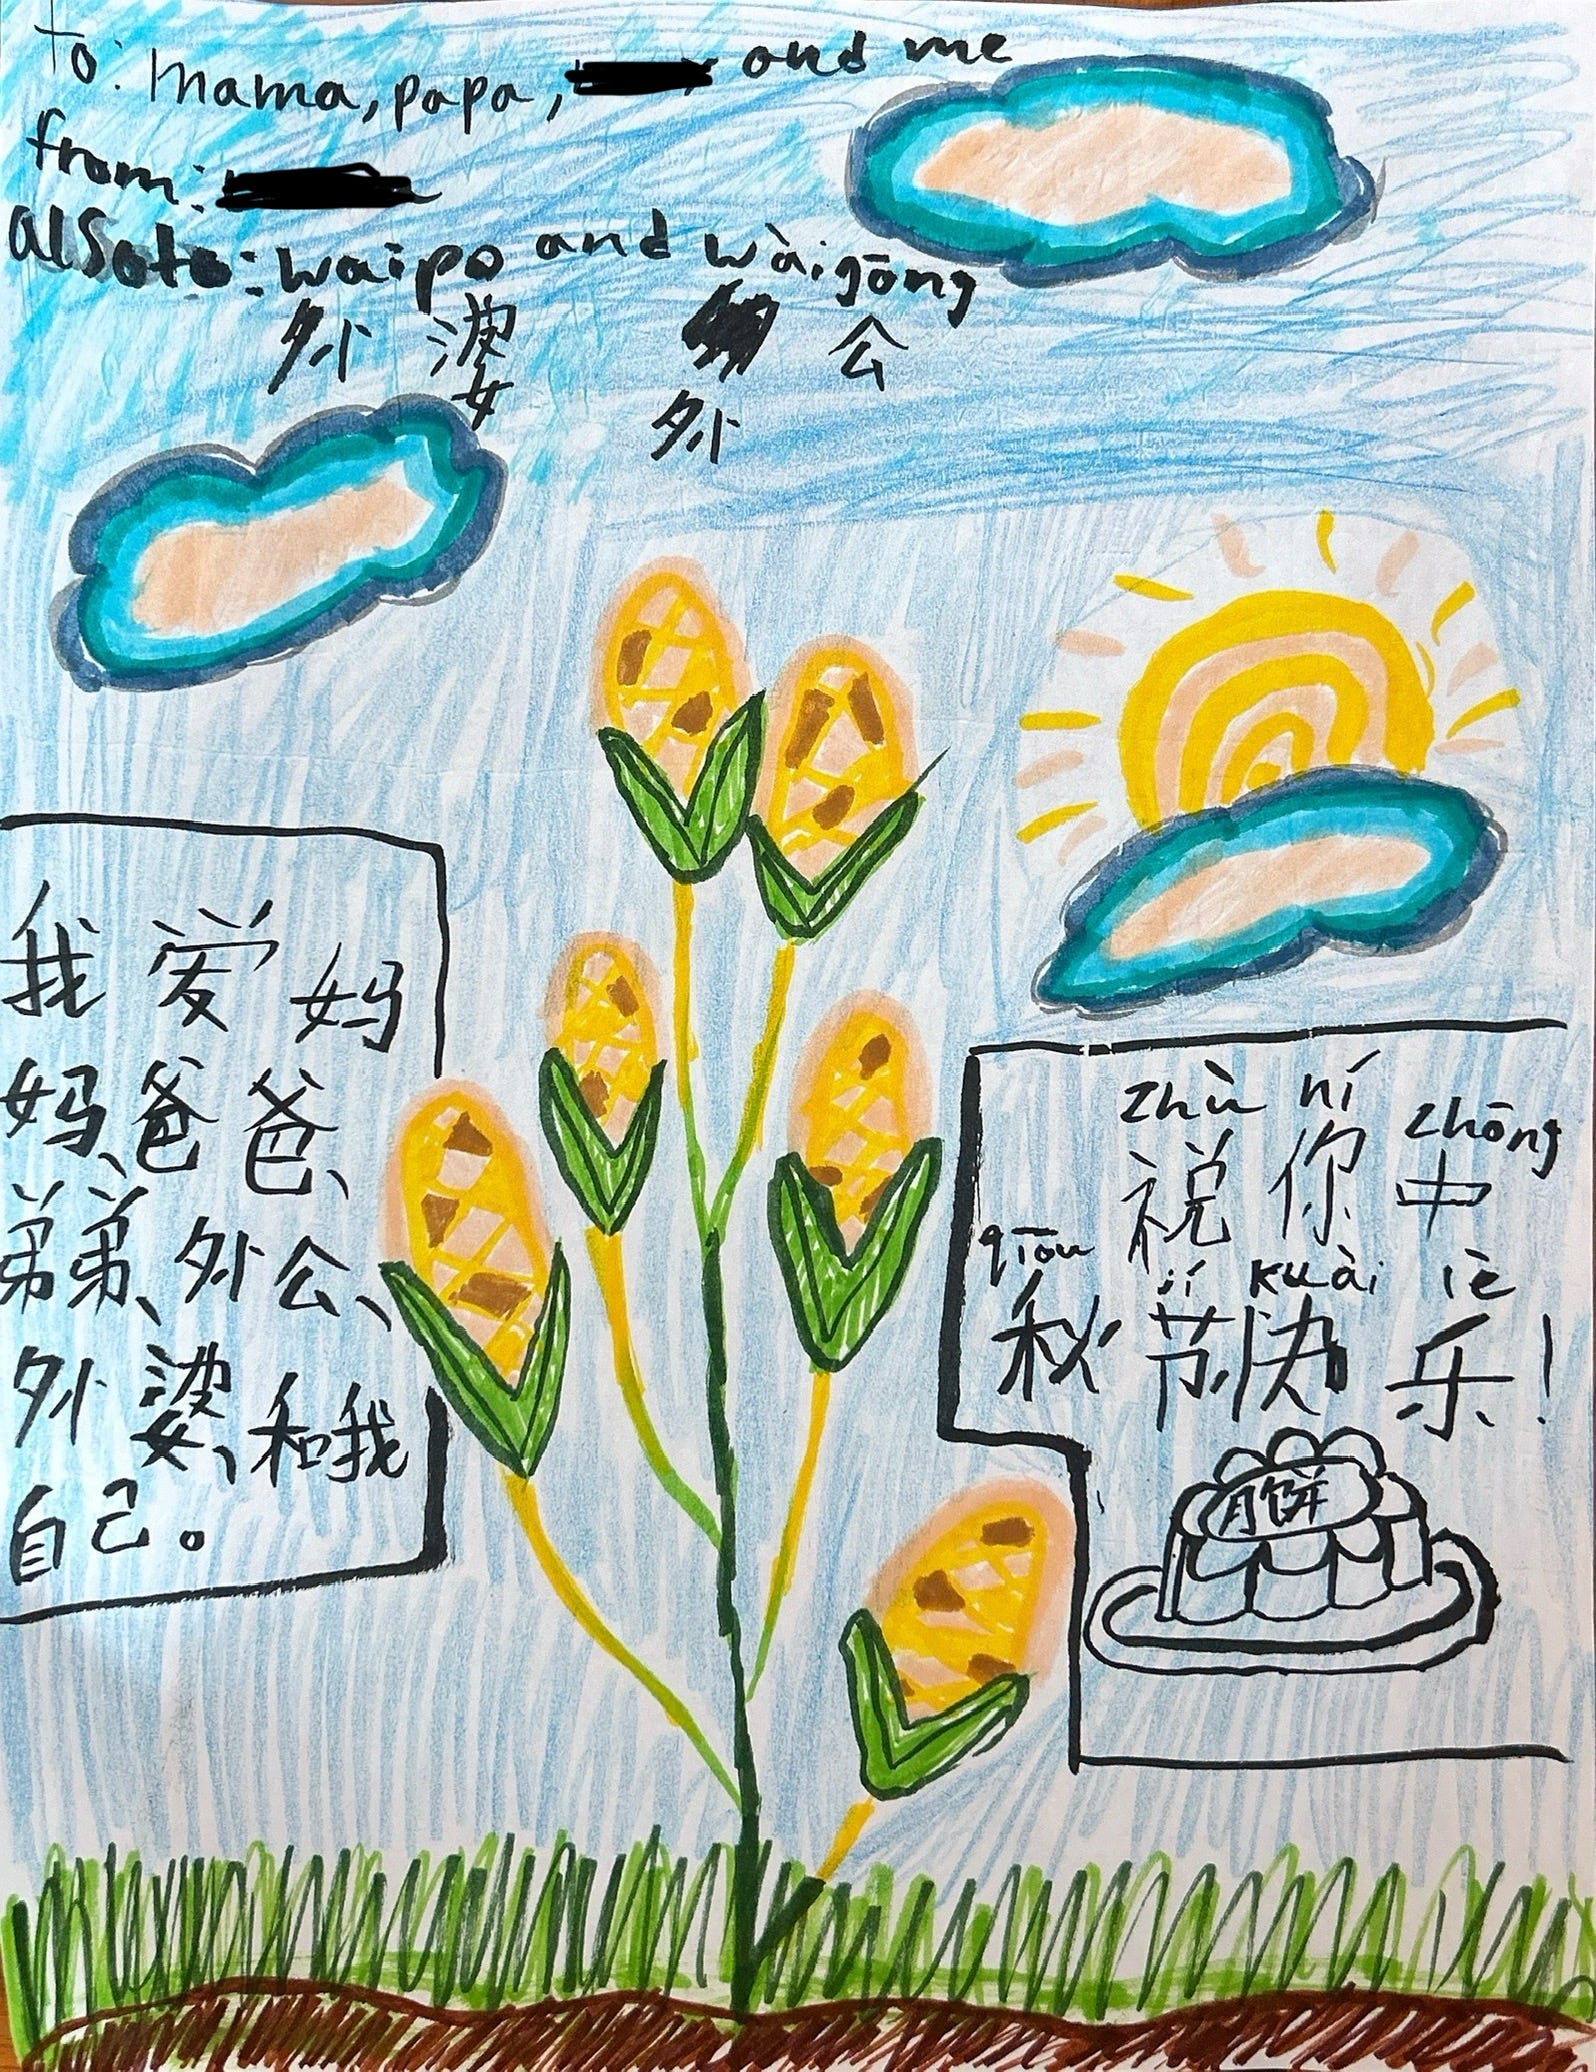 to: mama, papa, and me
from:
also to: waipo and wàigōng
外 婆 公
外
我 爱 妈
妈、爸 爸、
弟弟、外公、
外 婆、和我
自己。
zhù ní zhōng
祝 你 中
qiōu jí kuài lè
秋 节 快 乐!
月饼